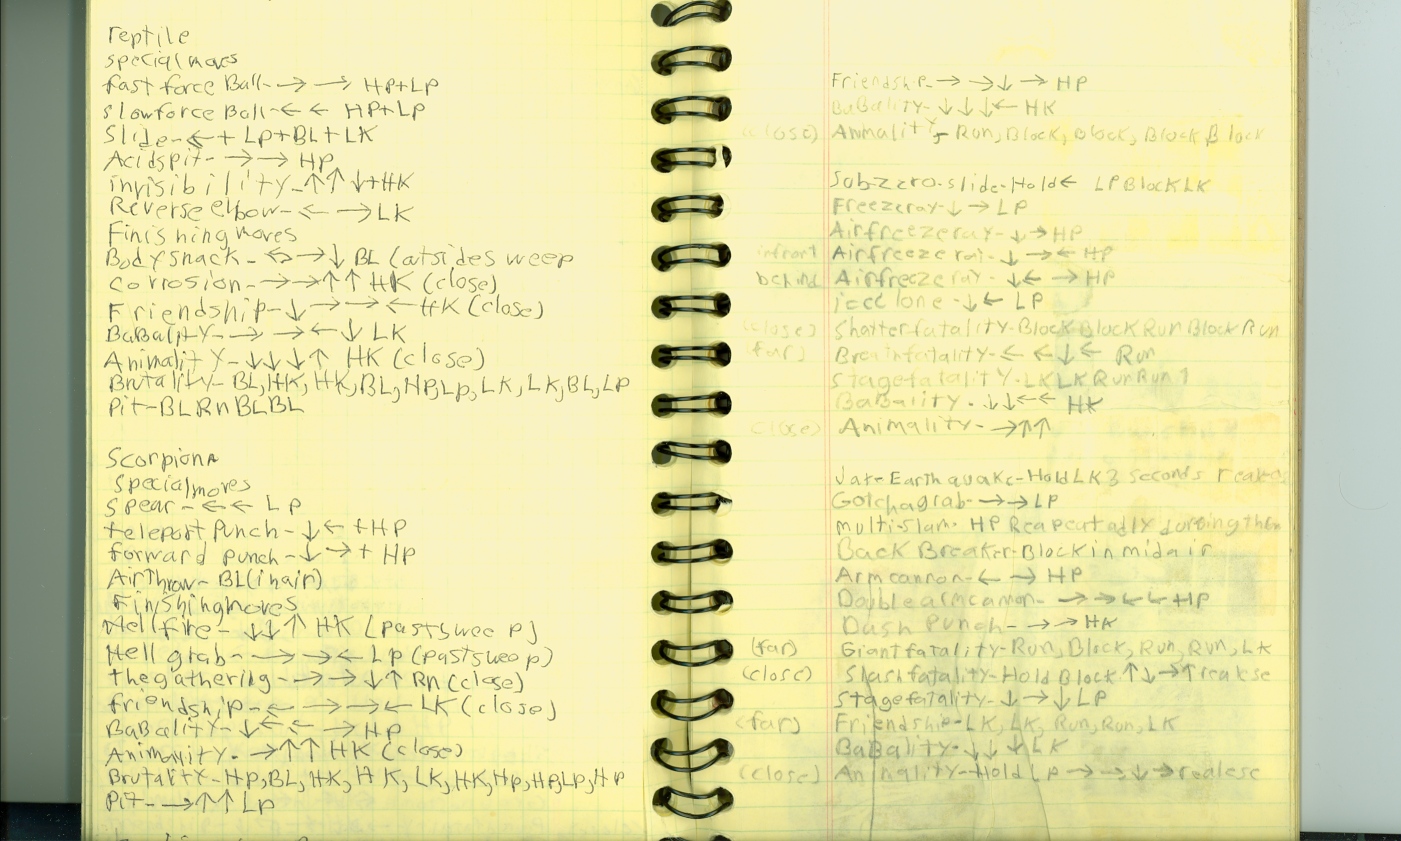 reptile
special moves
fast force Ball- → → HP+LP
slowforce Ball- ← ← HP+LP
Slide- ← + LP+BL+LK
Acidspit- → → HP
invisibility- ↑ ↑ ↓+HK
Reverse elbow- ← → LK
Finishing moves
Body snack - ← → ↓ BL (atsides weep
corrosion- → → ↑ ↑ HK (close)
Friendship- ↓ → → ← HK (close)
BaBality- → → ← ↓ LK
Animality- ↓ ↓ ↓ ↑ HK (close)
Brutality- BL, HK, HK, BL, HP, LP, LK, LK, BL, LP
Pit- BL Rn BL BL
Scorpion
Special moves
Spear- ← ← LP
teleport punch- ↓ ← +HP
forward punch- ↓ → + HP
AirThrow- BL (in air)
Finishing moves
Hellfire- ↓ ↓ ↑ HK (pastsweep)
Hell grab- → → ← LP (pastsweep)
thegathering- → → ↓ ↑ Rn (close)
friendship- ← → → ← LK (close)
BaBality- ↓ ← ← → HP
Animality- → ↑ ↑ HK (close)
Brutality- HP, BL, HK, HK, LK, HK, HP, HP, LP, HP
Pit- → ↑ ↑ LP
Friendship- → → ↓ → HP
BaBality- ↓ ↓ ↓ ← HK
(close) Animality- Run, Block, Block, Block Block
Sub-zero-slide-Hold ← LP Block LK
Freezeray- ↓ → LP
Airfreezeray- ↓ → HP
infront Airfreezeray- ↓ → ← HP
behind Airfreezeray- ↓ ← → HP
iceclone - ↓ ← LP
(close) Shatterfatality-Block Block Run Block Run
far) fatality- ← ← ↓ ← Run
Stagefatality-LK LK Run Run
BaBality- ↓ ↓ ← ← HK
close) Animality- → ↑ ↑
Earthquake-Hold LK 3 seconds
Gotchagrab- → → LP
multi-slam- HP
Back Breaker-Block in mid air
Armcannon- ← → HP
Double armcannon- → → ← ← HP
Dash Punch- → → HK
(far) Giantfatality-Run, Block, Run, Run, LK
(close) Slashfatality-Hold Block ↑ ↓ → ↑
Stagefatality- ↓ → ↓ LP
(far) Friendship-LK, LK, Run, Run, LK
BaBality- ↓ ↓ ↓ LK
(close) Animality-Hold LP → → ↓ → realese